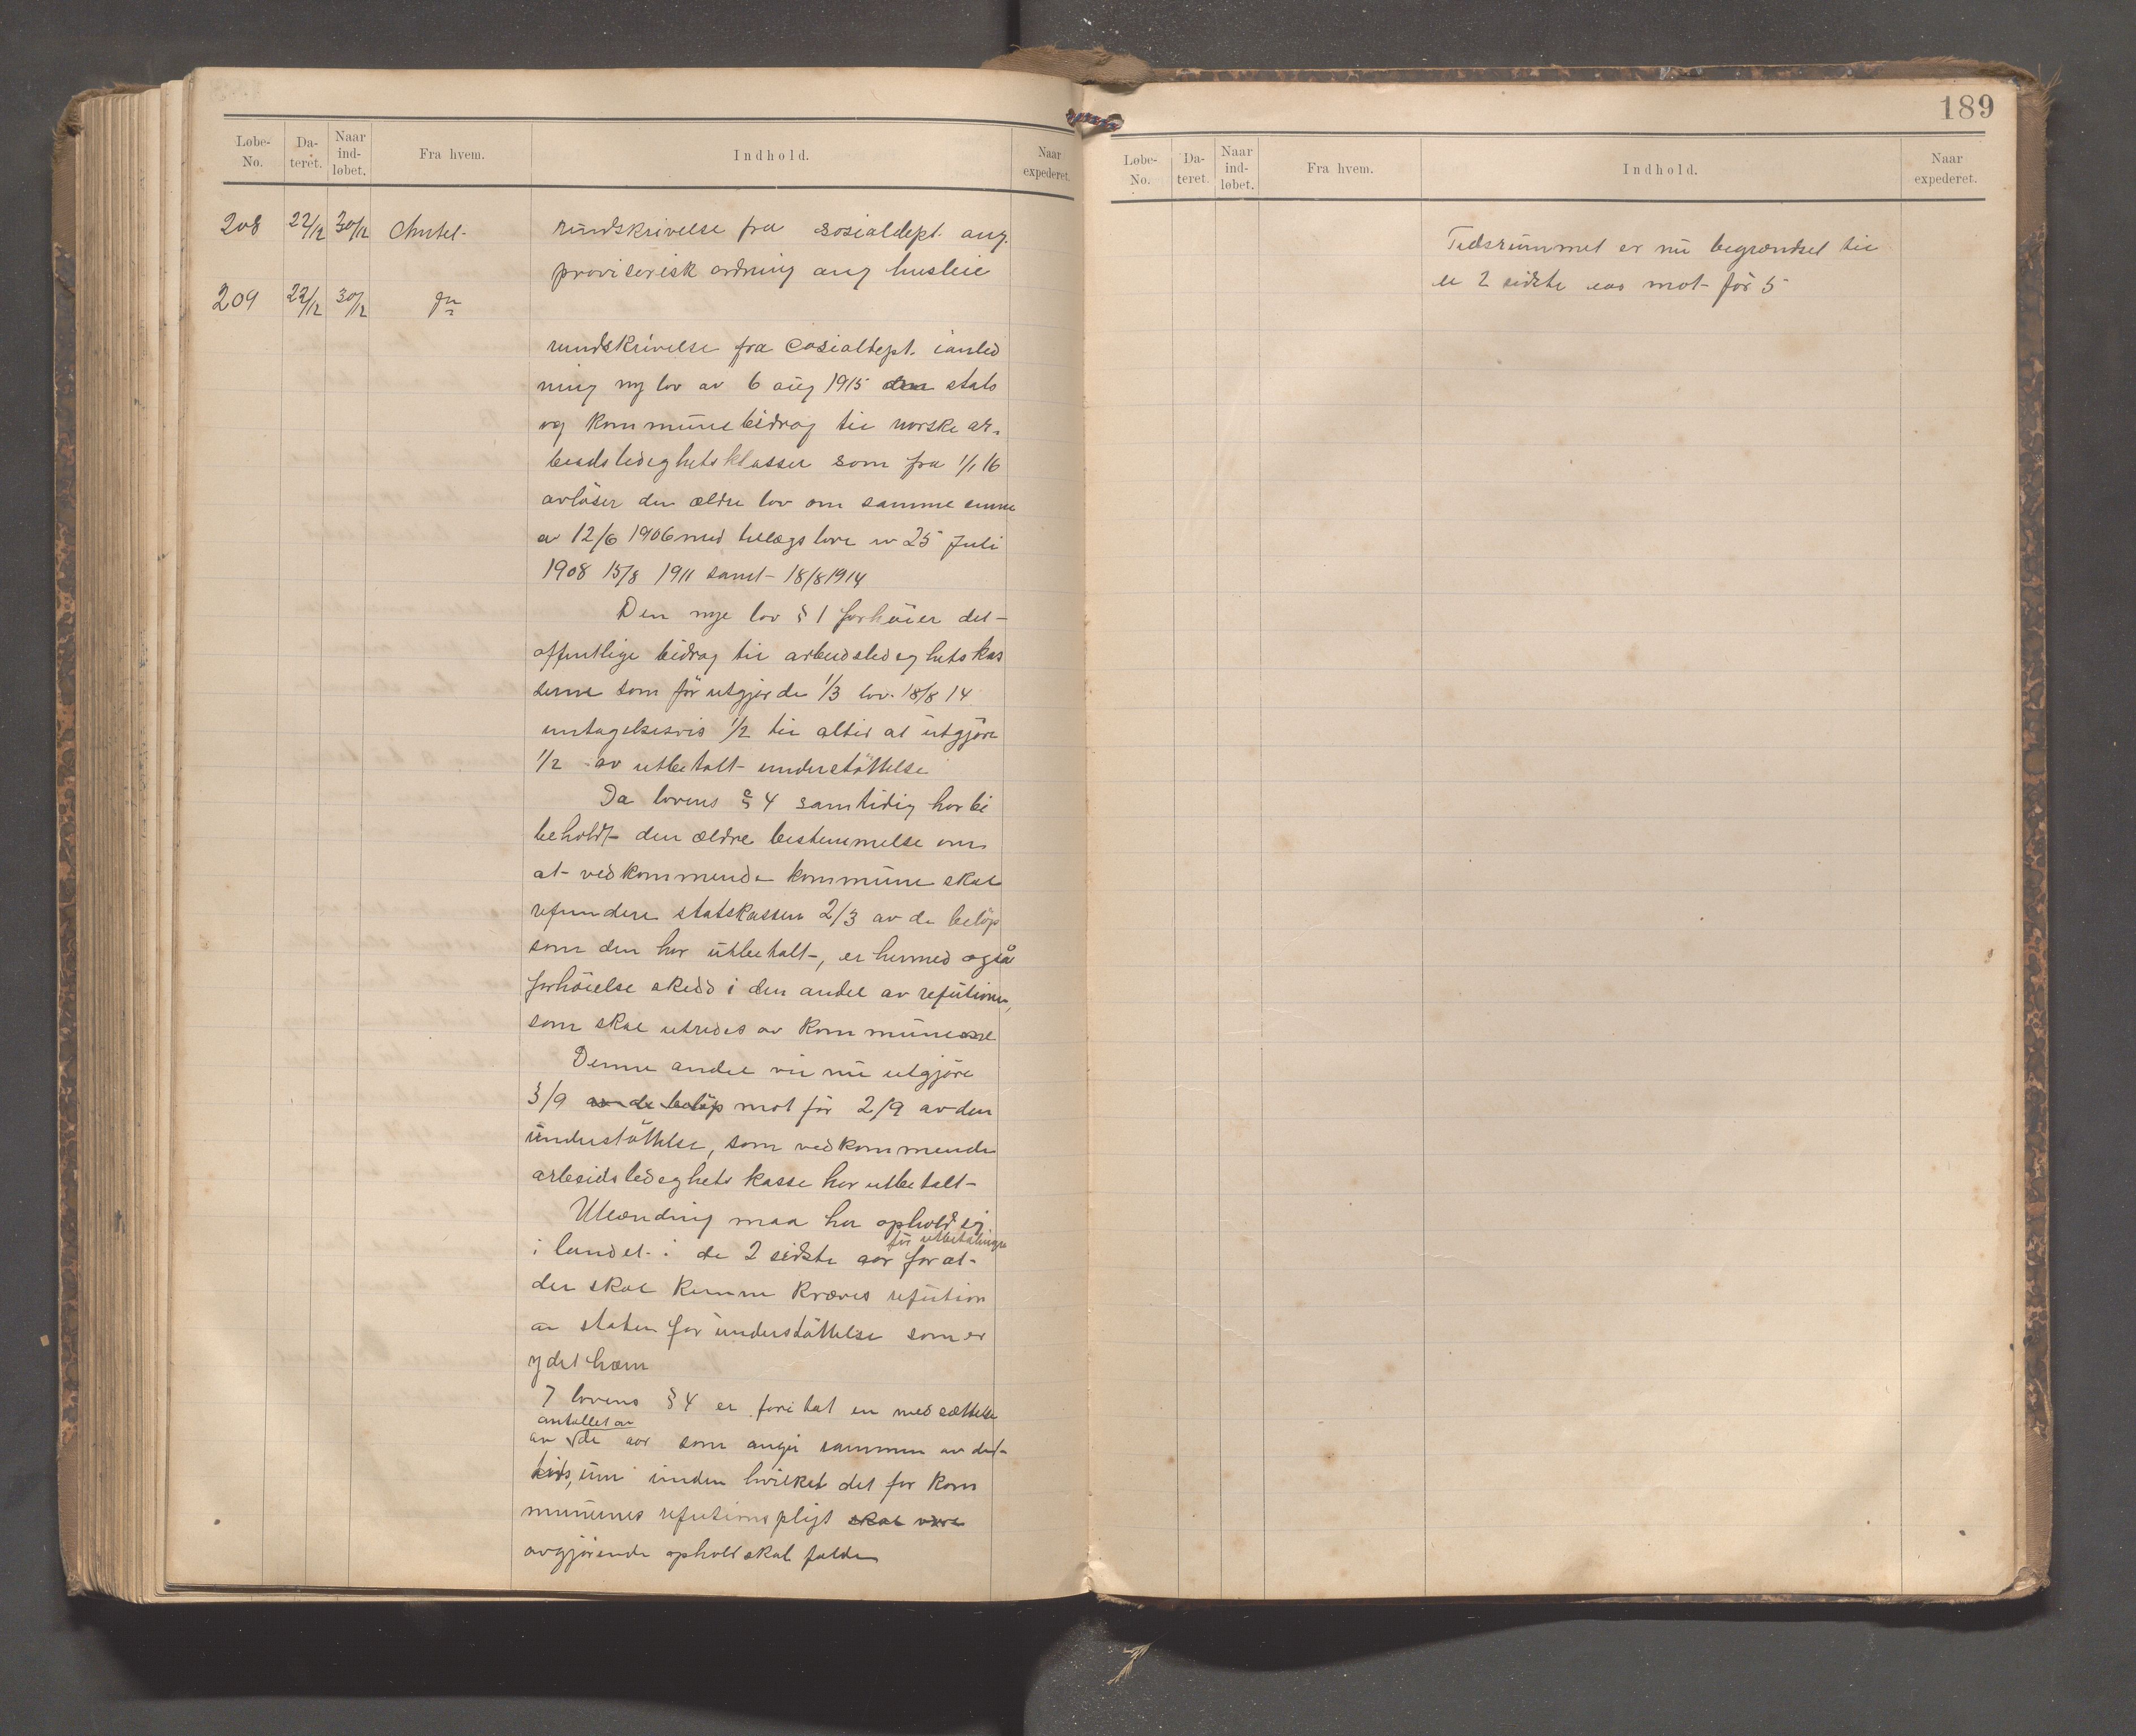 Løbe-No. Da-teret. Naar ind-løbet. Fra hvem. Indhold. Naar expederet.
208 22/12 30/12 Amtet. rundskrivelse fra sosialdept. ang.
provisorisk ordning ang husleie
209 22/12 30/12
rundskrivelse fra Cosialdept. ianled
ning ny lov av 6 aug 1915 stats
og kommunebidrag til norske ar-
beidsledighetsklasser som fra 1/1 16
avløser den ældre lov om samme emne
av 12/6 1906 med tillægslove av 25 Juli
1908 15/8 1911 samt 18/8 1914
Den nye lov § 1 forhöier det
offentlige bidrag til arbeidsledighetskas
serne som för utgjorde 1/3 lov 18/8 14
undtagelsesvis 1/2 til altid at utgjöre
1/2 av utbetalt understöttelse
Da lovens § 4 samtidig har bi
beholdt den ældre bestemmelse om
at vedkommende kommune skal
refundere statskassen 2/3 av de belöp
som den har utbetalt, er hermed også
forhöielse skedd i den andel av refutionen,
som skal utredes av kommunene
Denne andel vil nu utgjöre
3/9 av de belöp mot för 2/9 av den
understöttelse, som vedkommende
arbeidsledighets kasse har utbetalt
Utlænding maa ha opholdt sig
för utbetalingen
i landet i de 2 sidste aar for at
der skal kunne kræves refution
av staten for understöttelse som er
ydet ham
I lovens § 4 er foretat en nedsættelse
antallet av
av de aar som angir rammen av det
tidsrum inden hvilket det for kom
munenes refutionspligt skal være
avgjörende ophold skal falde
189
Løbe-No. Da-teret. Naar ind-løbet. Fra hvem. Indhold. Naar expederet.
Tidsrummet er nu begrændset til
de 2 sidste aar mot för 5